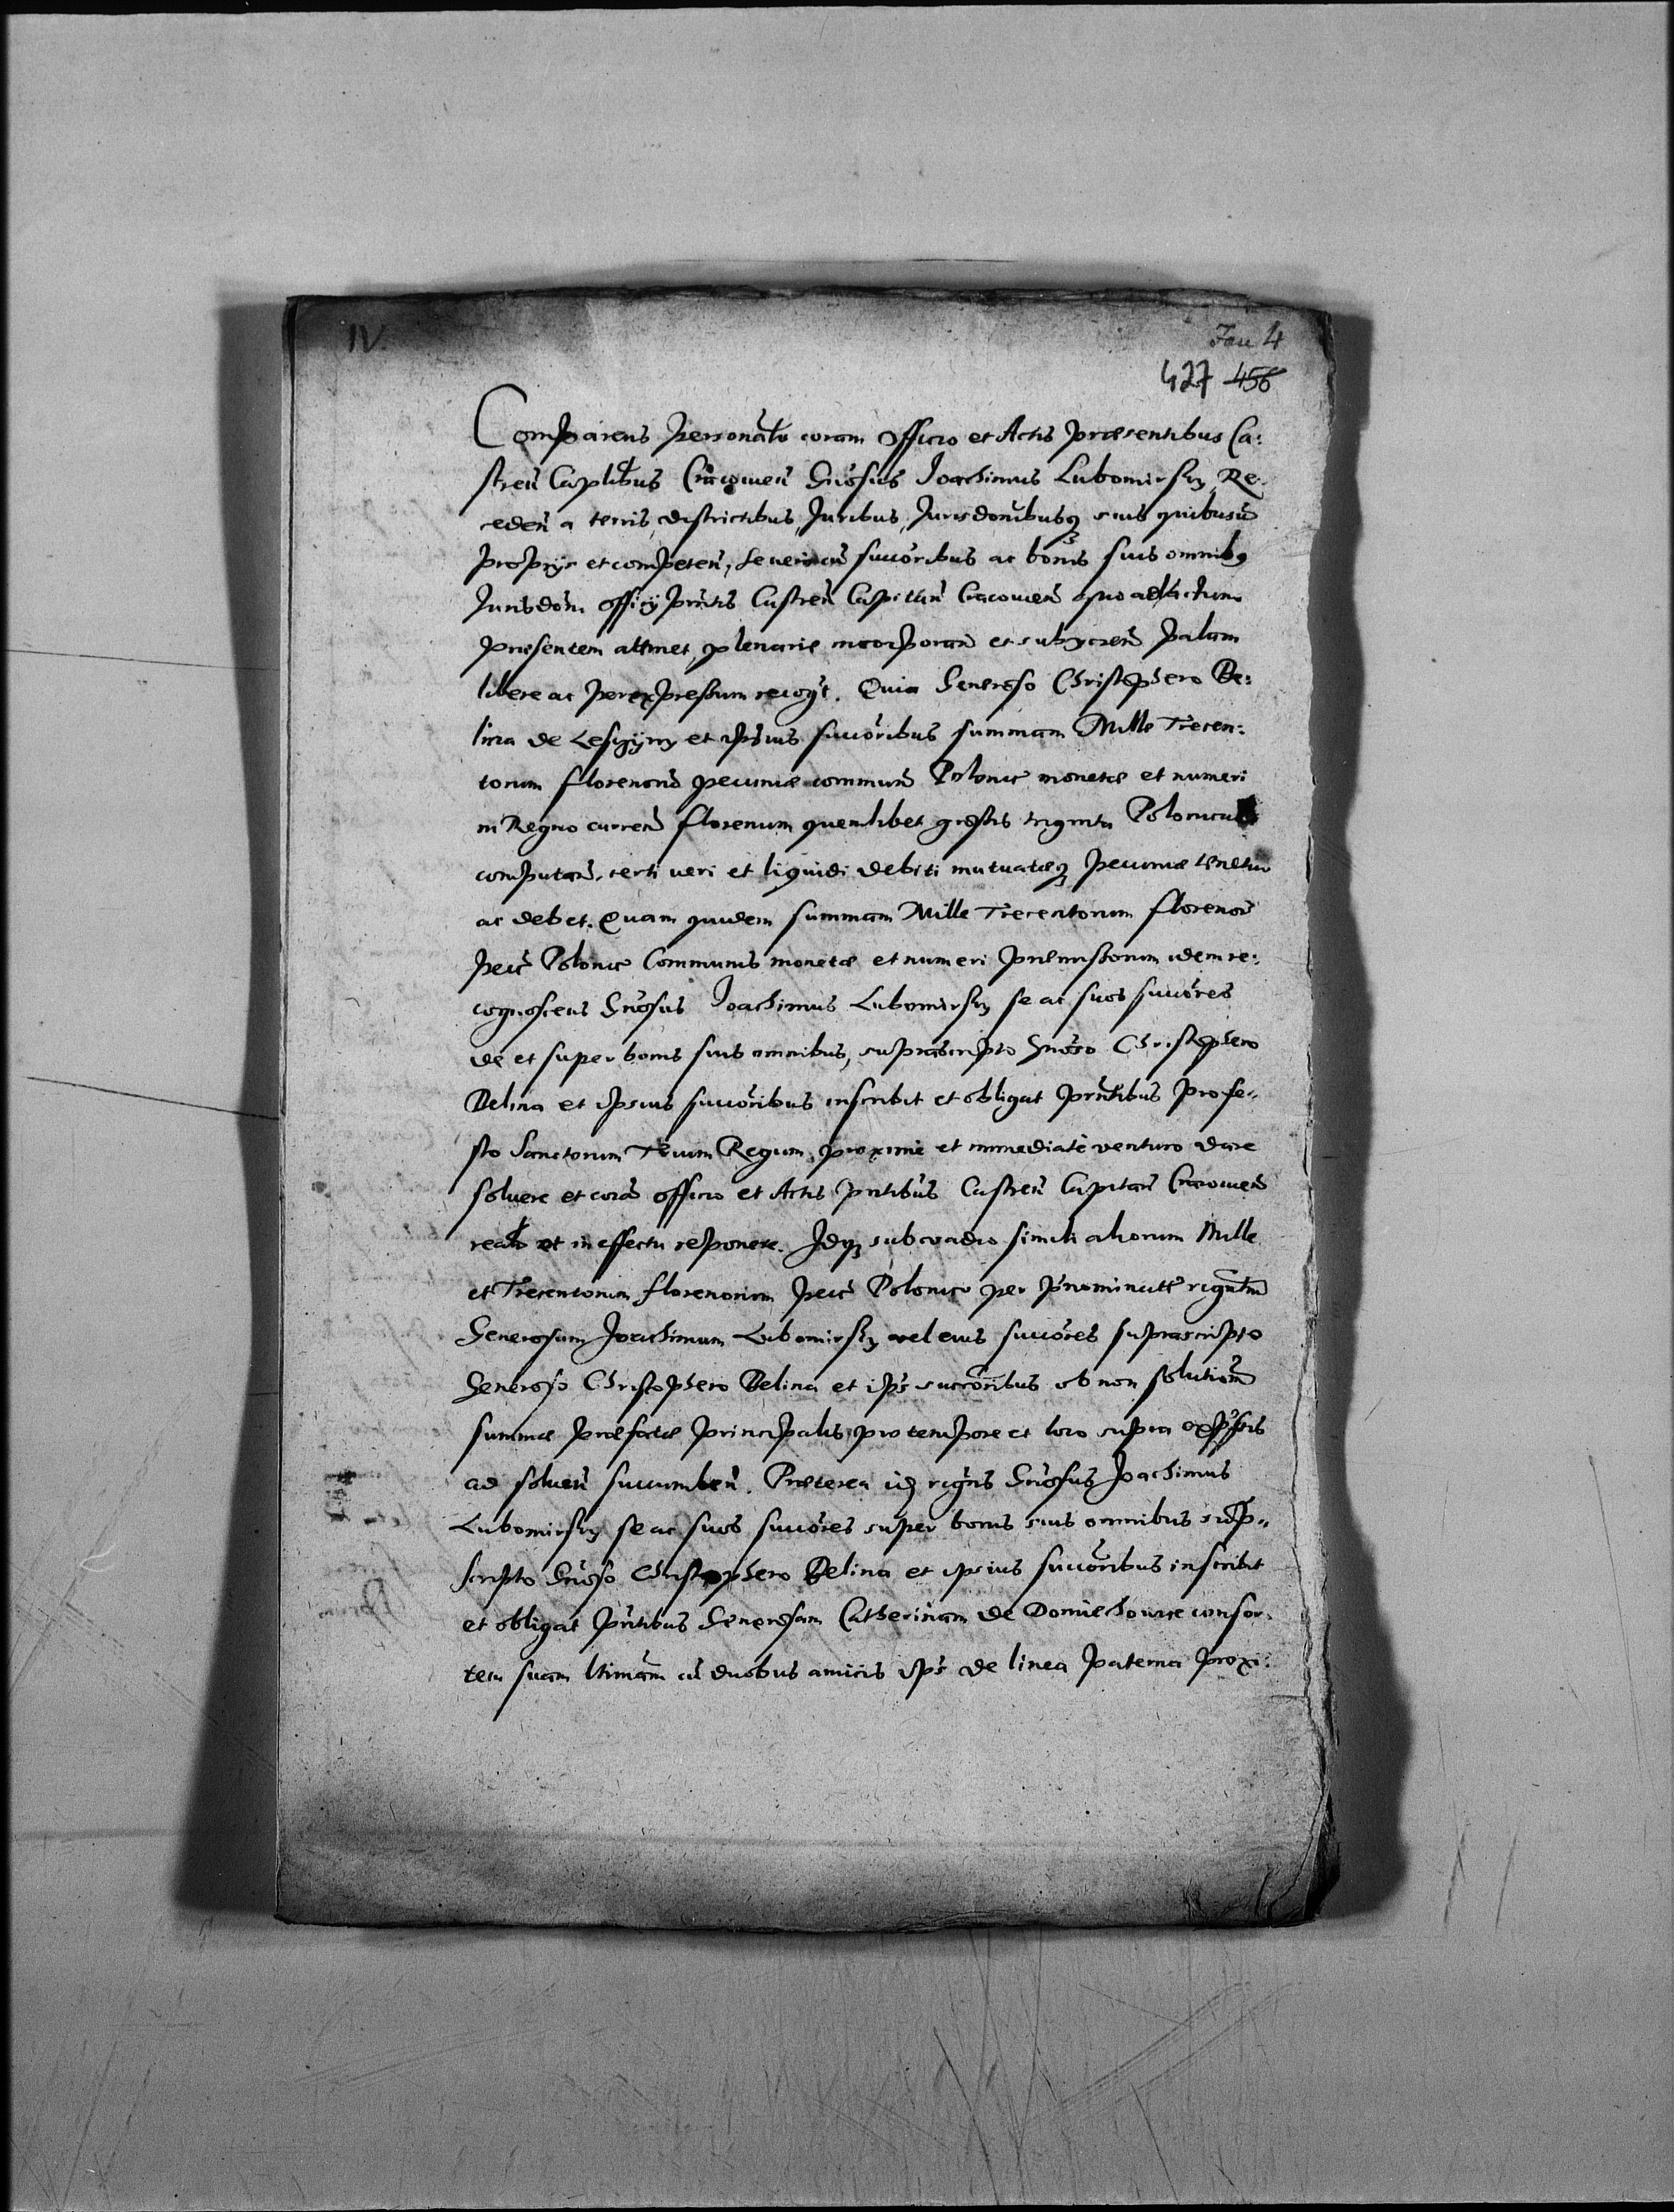 IV.
Jan 4
427 456
Comparens personalr coram officio et Actis præsentibus Ca:
stren Caplibus Cracovien Gnosus Joachimus Lubomirsky, Re
ceden a terris, districtibus, Juribus, Jurisdonibusq suis quibusvis
proprijs et competen, se verum cu succoribus ac bonis suis omnibq
Jurisdoni officij pntis Castren Capitan Cracovien quo ad actum
præsentem attinet, plenarie incorporan et subijcien palam
libere ac per expressum recogt. Quia Generoso Christophero Be:
lina de Leszyny et ipsius succoribus summam Mille Trecen:
torum florenorū pecuniæ communis Polonice monetæ et numeri
in Regno curren florenum quemlibet grossis triginta Polonicali
computan, certi veri et liquidi debiti mutuatæq pecuniæ tenetur
ac debet. Quam quidem summam Mille Trecentorum florenor
pec Polonice Communis monetæ et numeri præmissorum idem re:
cognoscens Gnosus Joachimus Lubomirsky se ac suos succores
de et super bonis suis omnibus, suprascripto Gnoso Christophero
Belina et ipsius succoribus inscribit et obligat pntibus pro fe:
sto Sanctorum Trium Regum, proxime et immediatè venturo dare
solvere et corā officio et Actis pntibus Castren Capitan Cracovien
realr et in effectu reponere. Idq sub vadio simili aliorum Mille
et Trecentorum florenorum pec Polonice per pnominatū rigntm
Generosum Joachimum Lubomirsky vel eius succores suprascripto
Generoso Christophero Belina et ips succoribus ob non solutionē
summæ præfatæ principalis pro tempore et loco supra expssis
ad solven succumben. Præterea idē rigns Gnosus Joachimus
Lubomirsky se ac suos succores super bonis suis omnibus sup
scripto Gnoso Christophero Belina et ipsius succoribus inscribit
et obligat pntibus Generosam Catherinam de Domiechowice consor
tem suam ltimam cū duobus amicis ips de linea paterna proxi: